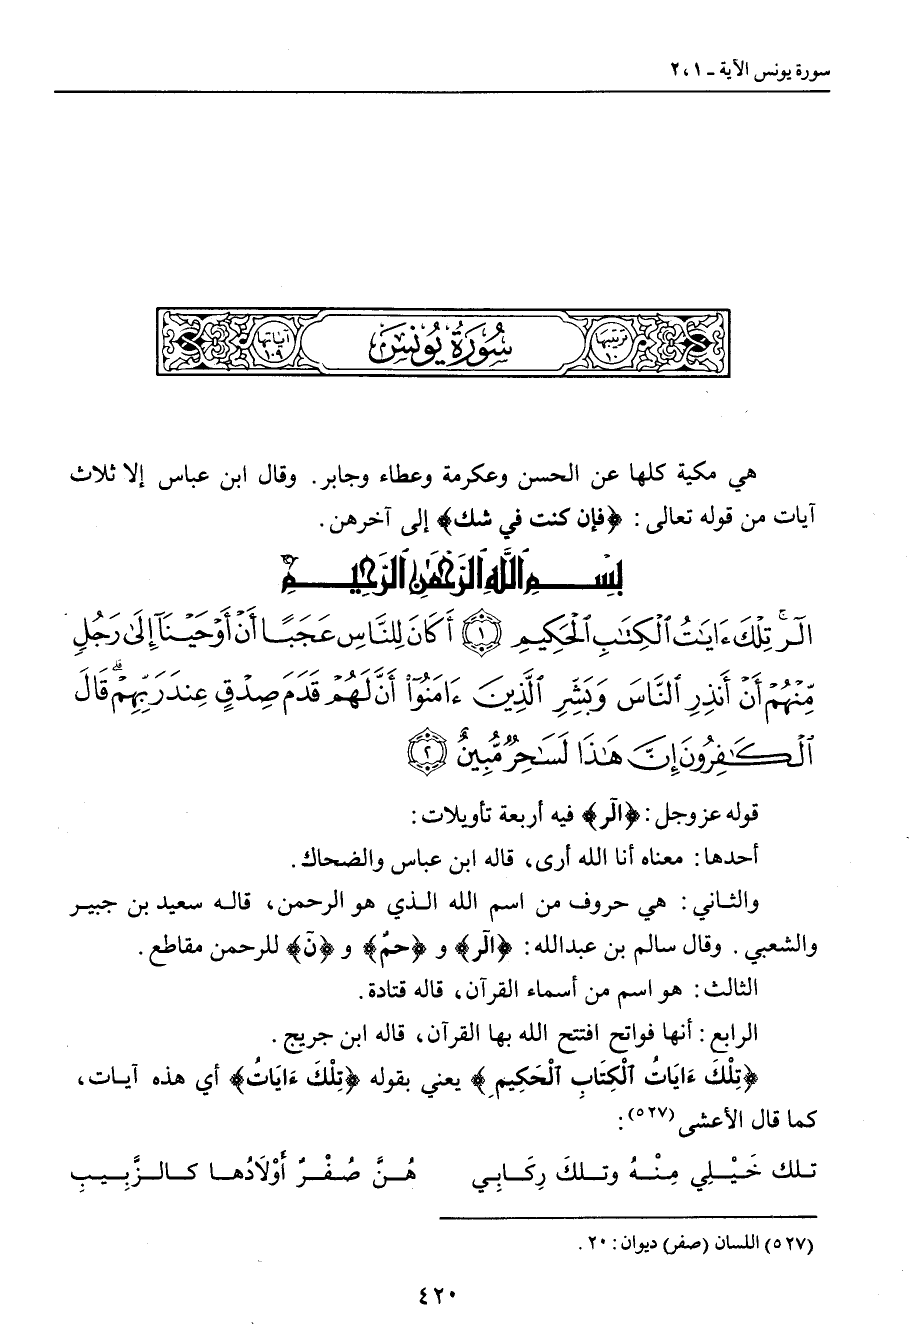 سورة يونس الآية ـ ١، ٢
ترتيبها ١٠
سُورَةُ يُونُسَ
آياتها ١٠٩
هي مكية كلها عن الحسن وعكرمة وعطاء وجابر. وقال ابن عباس إلا ثلاث
آيات من قوله تعالى: ﴿فإن كنت في شك﴾ إلى آخرهن.
بِسْمِ ٱللَّهِ ٱلرَّحْمَٰنِ ٱلرَّحِيمِ
الٓرۚ تِلْكَ ءَايَٰتُ ٱلْكِتَٰبِ ٱلْحَكِيمِ ١ أَكَانَ لِلنَّاسِ عَجَبًا أَنْ أَوْحَيْنَآ إِلَىٰ رَجُلٍ
مِّنْهُمْ أَنْ أَنذِرِ ٱلنَّاسَ وَبَشِّرِ ٱلَّذِينَ ءَامَنُوٓا۟ أَنَّ لَهُمْ قَدَمَ صِدْقٍ عِندَ رَبِّهِمْۗ قَالَ
ٱلْكَٰفِرُونَ إِنَّ هَٰذَا لَسَٰحِرٌ مُّبِينٌ ٢
قوله عز وجل: ﴿الٓر﴾ فيه أربعة تأويلات:
أحدها: معناه أنا الله أرى، قاله ابن عباس والضحاك.
والثاني: هي حروف من اسم الله الذي هو الرحمن، قاله سعيد بن جبير
والشعبي. وقال سالم بن عبدالله: ﴿الٓر﴾ و ﴿حمٓ﴾ و ﴿نٓ﴾ للرحمن مقاطع.
الثالث: هو اسم من أسماء القرآن، قاله قتادة.
الرابع: أنها فواتح افتتح الله بها القرآن، قاله ابن جريج.
﴿تِلْكَ ءَايَاتُ ٱلْكِتَابِ ٱلْحَكِيمِ﴾ يعني بقوله ﴿تِلْكَ ءَايَاتُ﴾ أي هذه آيات،
كما قال الأعشى(٥٢٧):
تلك خَيْلِي مِنْهُ وتلكَ رِكَابِي هُنَّ صُفْرٌ أَوْلَادُها كالزَّبِيبِ
(٥٢٧) اللسان (صفر) ديوان: ٢٠.
٤٢٠